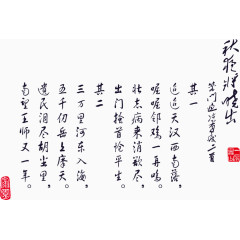 秋夜将晓出
篱门迎凉有感二首
其一
迢迢天汉西南落，
喔喔邻鸡一再鸣。
壮志病来消欲尽，
出门搔首怆平生。
其二
三万里河东入海，
五千仞岳上摩天。
遗民泪尽胡尘里，
南望王师又一年。